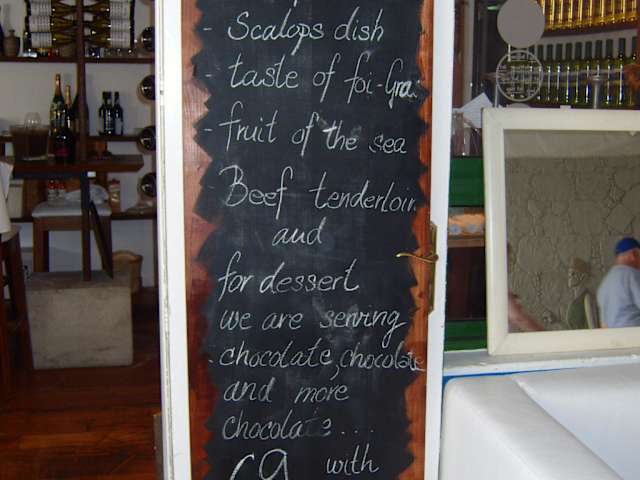 - Scalops dish
- taste of foi-Gra
- fruit of the sea
Beef tenderloin
and
for dessert
we are serving
chocolate, chocolate
and more
chocolate....
with